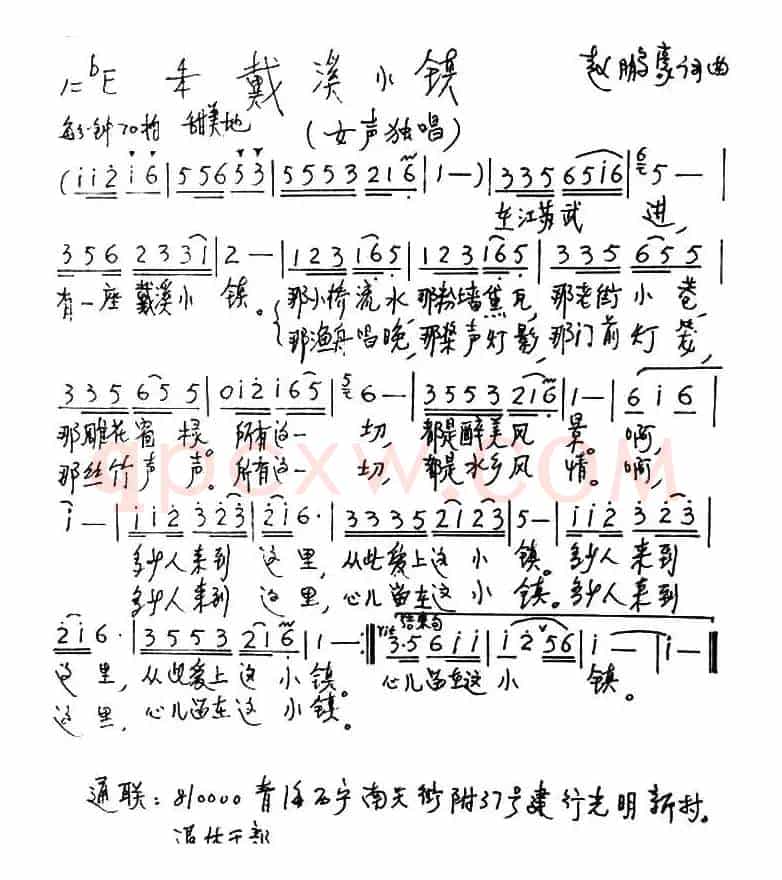 1=♭E 2/4 戴溪小镇 赵鹏豪词曲
每分钟70拍 甜美地 (女声独唱)
(1 1 2 1 6 | 5 5 6 5 3 | 5 5 5 3 2 1 6 | 1 — ) | 3 3 5 6 5 1 6 | 5 — |
在江苏武 进,
3 5 6 2 3 3 1 | 2 — | 1 2 3 1 6 5 | 1 2 3 1 6 5 | 3 3 5 6 5 5 |
有一座 戴溪小 镇。 那小桥流水,那粉墙黛瓦,那老街小 巷,
那渔舟唱晚,那桨声灯影,那门前灯 笼,
3 3 5 6 5 5 | 0 1 2 1 6 5 | 6 — | 3 5 5 3 2 1 6 | 1 — | 6 1 6 |
那雕花窗 棂。所有这一 切, 都是醉美风 景。 啊,
那丝竹声 声。所有这一 切, 都是水乡风 情。 啊,
1 — | 1 1 2 3 2 3 | 2 1 6 · | 3 3 3 5 2 1 2 3 | 5 — | 1 1 2 3 2 3 |
多少人来到 这里, 从此爱上这 小 镇。多少人 来到
多少人来到 这里, 心儿留在这 小 镇。多少人来到
2 1 6 · | 3 5 5 3 2 1 6 | 1 — :‖ rit 结束句 3 · 5 6 1 1 | 1 2 5 6 | 1 — | 1 — ‖
这里, 从此爱上这 小镇。 心儿留在这 小 镇。
这里, 心儿留在这 小镇。
通联: 810000 青海西宁南关街附37号建行光明新村。
温休干部